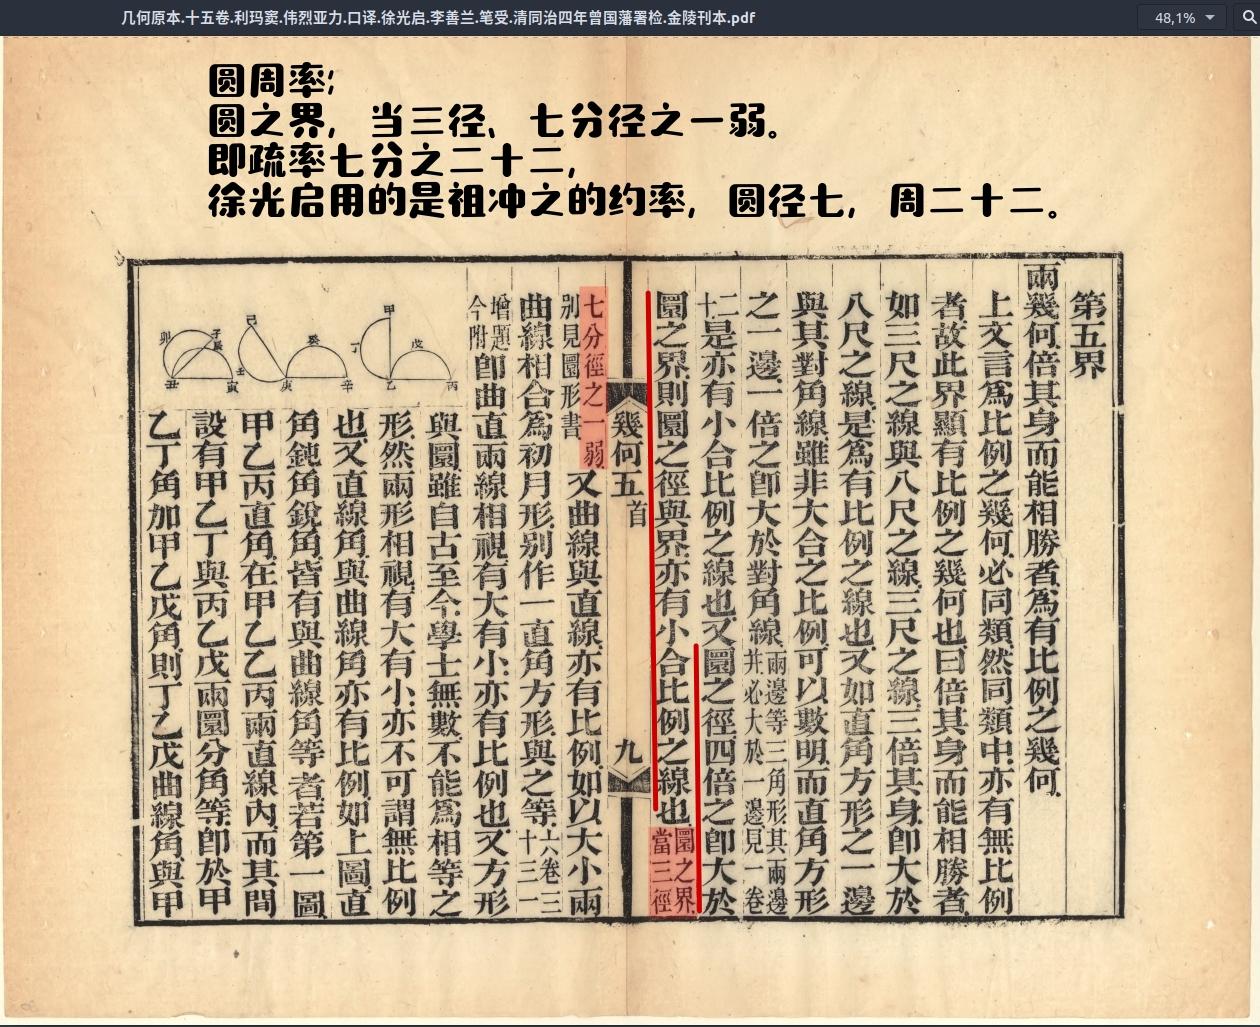 几何原本.十五卷.利玛窦.伟烈亚力.口译.徐光启.李善兰.笔受.清同治四年曾国藩署检.金陵刊本.pdf
48,1%
圆周率;
圆之界，当三径、七分径之一弱。
即疏率七分之二十二，
徐光启用的是祖冲之的约率，圆径七，周二十二。
第五界
兩幾何倍其身而能相勝者為有比例之幾何
上文言為比例之幾何必同類然同類中亦有無比例
者故此界顯有比例之幾何也曰倍其身而能相勝者
如三尺之線與八尺之線三尺之線三倍其身即大於
八尺之線是為有比例之線也又如直角方形之一邊
與其對角線雖非大合之比例可以數明而直角方形
之一邊一倍之即大於對角線兩邊等三角形其兩邊并必大於一邊見一卷
二十是亦有小合比例之線也又圜之徑四倍之即大於
圜之界則圜之徑與界亦有小合比例之線也圜之界當三徑
幾何五首
九
七分徑之一弱別見圜形書又曲線與直線亦有比例如以大小兩
曲線相合為初月形別作一直角方形與之等六卷三十三一
增題今附即曲直兩線相視有大有小亦有比例也又方形
與圜雖自古至今學士無數不能為相等之
形然兩形相視有大有小亦不可謂無比例
也又直線角與曲線角亦有比例如上圖直
角鈍角銳角皆有與曲線角等者若第一圖
甲乙丙直角在甲乙乙丙兩直線內而其間
設有甲乙丁與丙乙戊兩圜分角等即於甲
乙丁角加甲乙戊角則丁乙戊曲線角與甲
甲
丁
戊
乙
丙
己
癸
壬
庚
辛
卯
子
辰
丑
寅